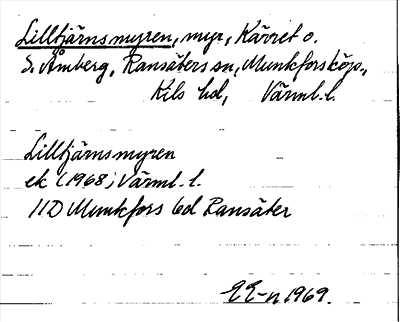 Lilltjärnsmyren, myr, Kärret o.
S. Åmberg, Ransäters sn, Munkforsköp.,
Kils hd, Värml. l.
Lilltjärnsmyren
ek (1968) Värml. l.
11D Munkfors 6d Ransäter
EE-n 1969.